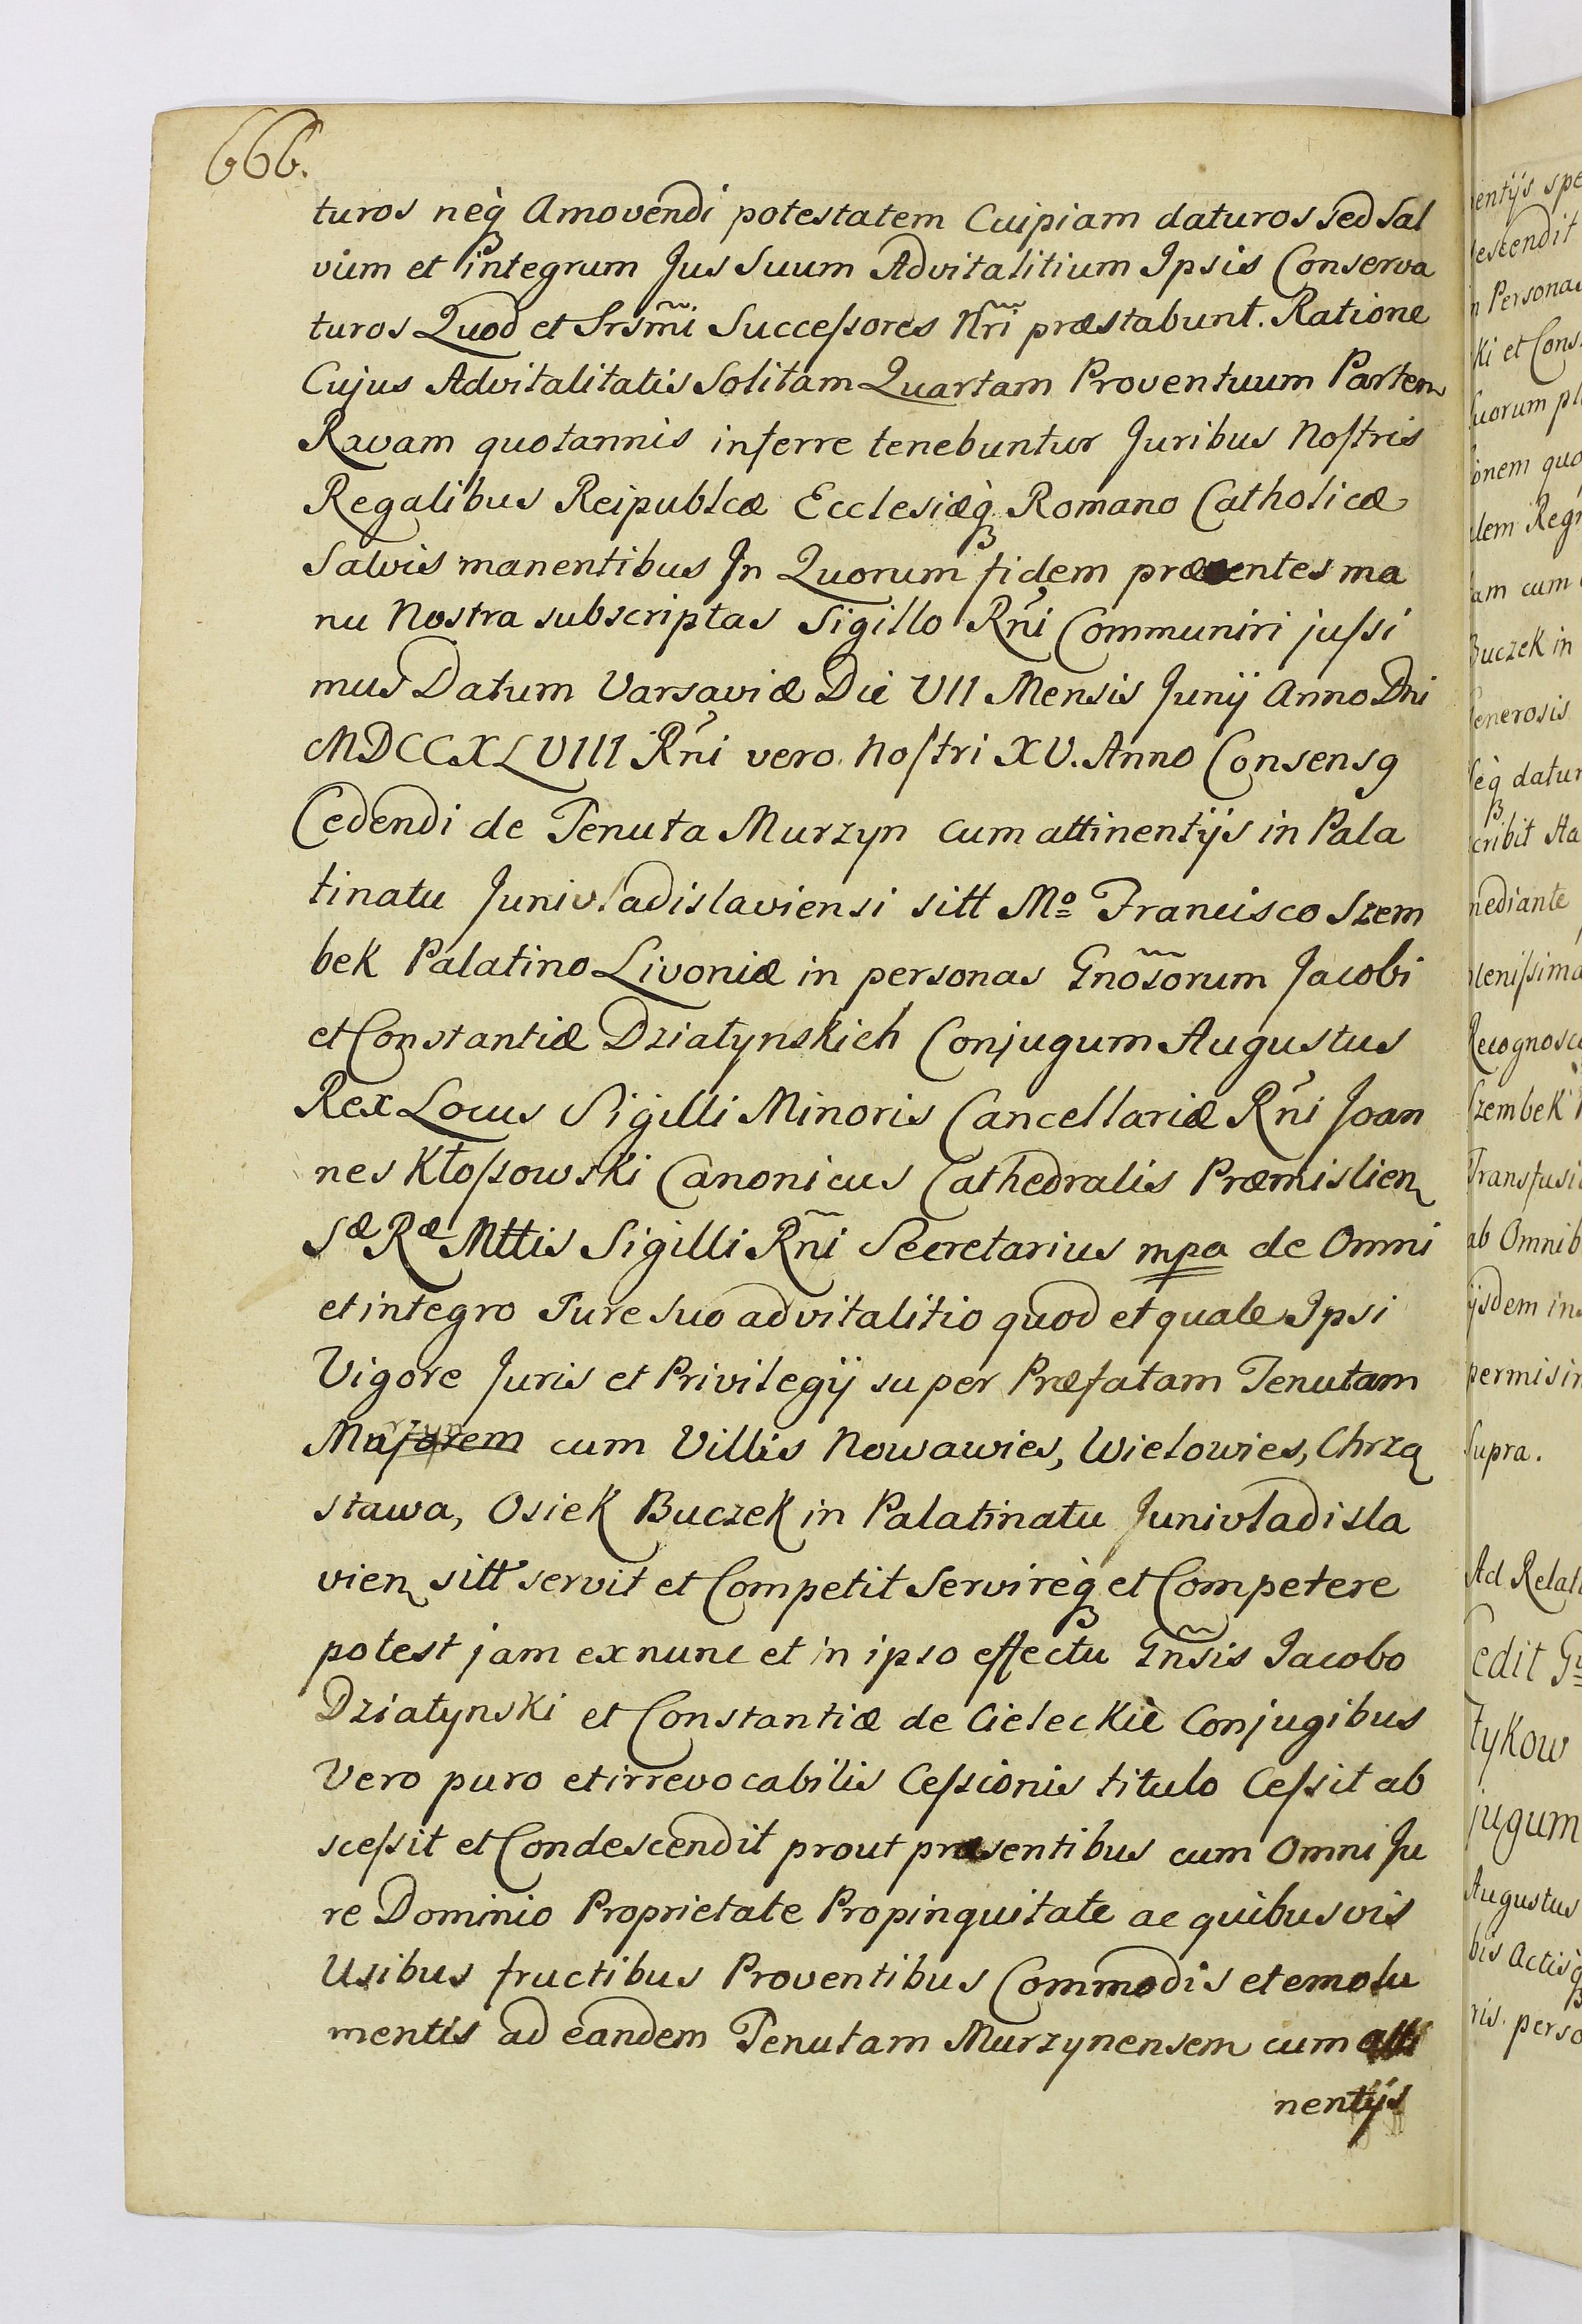 666.
turos neq̀ꝫ Amovendi potestatem Cuipiam daturos sed Sal
vum et integrum Jus Suum Advitalitium Ipsis Conserva
turos Quod et Srsm̃i Succeſsores Nr̃i præstabunt. Ratione
Cujus Advitalitatis Solitam Quartam Proventuum Partem
Ravam quotannis inferre tenebuntur Juribus Noſtris
Regalibus Reipublcæ Ecclesiæq̀ꝫ Romano Catholicæ
Salvis manentibus In Quorum fidem præsentes ma
nu Nostra subscriptas Sigillo Rñi Communiri juſsi
mus Datum Varsaviæ Die VII Mensis Junij Anno Dni
MDCCXLVIII Rñi vero Noſtri XV. Anno Consensꝯ
Cedendi de Tenuta Murzyn cum attinentijs in Pala
tinatu Junivladislaviensi sitt Mº Francisco Szem
bek Palatino Livoniæ in personas Gnõsorum Jacobi
et Constantiæ Działynskich Conjugum Augustus
Rex Locus Sigilli Minoris Cancellariæ Rñi Joan
nes Kłoſsowski Canonicus Cathedralis Præmislien
Sæ Ræ Mttis Sigilli Rñi Secretarius mpa de Omni
et integro Jure suo advitalitio quod et quale Ipsi
Vigore Juris et Privilegij super Præfatam Tenutam
Murzyn cum Villis Nowawies, Wielowies, Chrzą
stawa, Osiek Buczek in Palatinatu Junivladisla
vien sitt servit et Competit Servireq̀ꝫ et Competere
potest jam ex nunc et in ipso effectu Gñsis Jacobo
Działynski et Constantiæ de Cieleckie Conjugibus
Vero puro et irrevocabilis Ceſsionis titulo Ceſsit ab
sceſsit et Condescendit prout præsentibus cum Omni Ju
re Dominio Proprietate Propinquitate ac quibusvis
Usibus fructibus Proventibus Commodis et emolu
mentis ad eandem Tenutam Murzynensem cum atti
nentijs